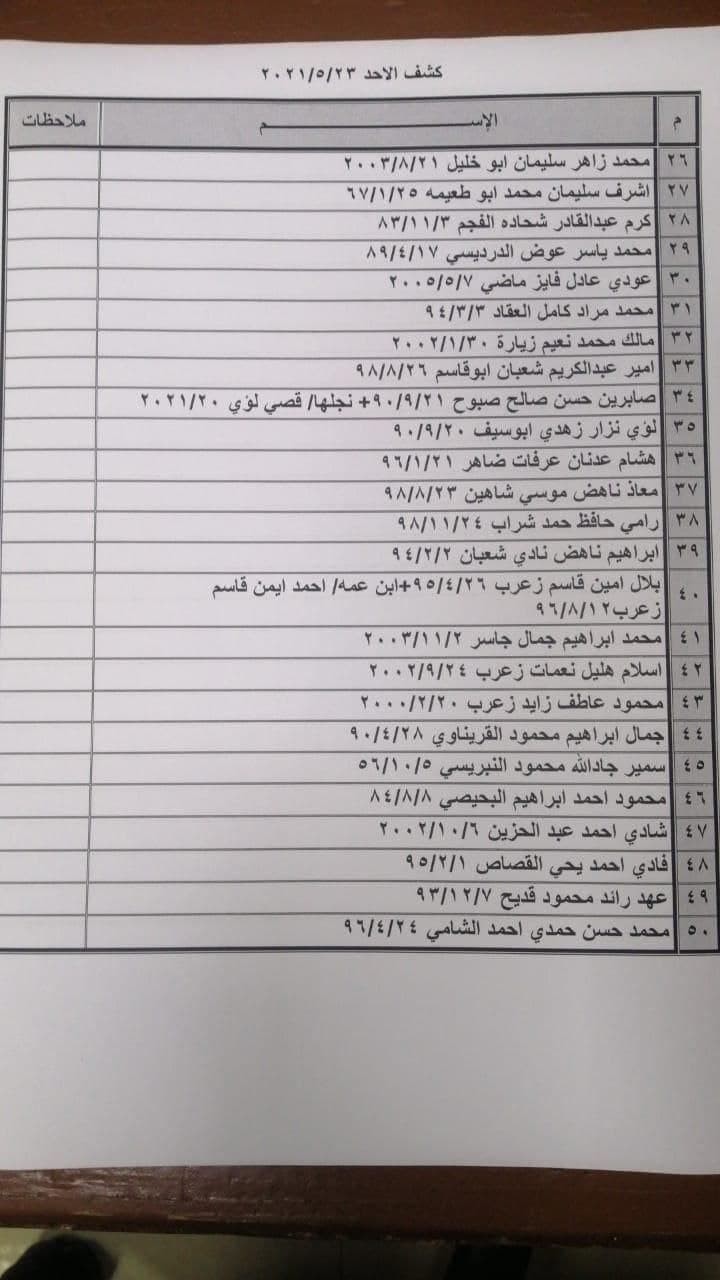 كشف الاحد ٢٠٢١/٥/٢٣
م الإســــــم ملاحظات
٢٦ محمد زاهر سليمان ابو خليل ٢٠٠٣/٨/٢١
٢٧ اشرف سليمان محمد ابو طعيمه ٦٧/١/٢٥
٢٨ كرم عبدالقادر شحاده الفجم ٨٣/١١/٣
٢٩ محمد ياسر عوض الدرديسي ٨٩/٤/١٧
٣٠ عودي عادل فايز ماضي ٢٠٠٥/٥/٧
٣١ محمد مراد كامل العقاد ٩٤/٣/٣
٣٢ مالك محمد نعيم زيارة ٢٠٠٢/١/٣٠
٣٣ امير عبدالكريم شعبان ابوقاسم ٩٨/٨/٢٦
٣٤ صابرين حسن صالح صبوح ٩٠/٩/٢١+ نجلها/ قصي لؤي ٢٠٢١/٢٠
٣٥ لؤي نزار زهدي ابوسيف ٩٠/٩/٢٠
٣٦ هشام عدنان عرفات ضاهر ٩٦/١/٢١
٣٧ معاذ ناهض موسي شاهين ٩٨/٨/٢٣
٣٨ رامي حافظ حمد شراب ٩٨/١١/٢٤
٣٩ ابراهيم ناهض نادي شعبان ٩٤/٢/٢
٤٠ بلال امين قاسم زعرب ٩٥/٤/٢٦+ابن عمه/ احمد ايمن قاسم
زعرب٩٦/٨/١٢
٤١ محمد ابراهيم جمال جاسر ٢٠٠٣/١١/٢
٤٢ اسلام هليل نعمات زعرب ٢٠٠٢/٩/٢٤
٤٣ محمود عاطف زايد زعرب ٢٠٠٠/٢/٢٠
٤٤ جمال ابراهيم محمود القريناوي ٩٠/٤/٢٨
٤٥ سمير جادالله محمود النبريسي ٥٦/١٠/٥
٤٦ محمود احمد ابراهيم البحيصي ٨٤/٨/٨
٤٧ شادي احمد عبد الحزين ٢٠٠٢/١٠/٦
٤٨ فادي احمد يحي القصاص ٩٥/٢/١
٤٩ عهد رائد محمود قديح ٩٣/١٢/٧
٥٠ محمد حسن حمدي احمد الشامي ٩٦/٤/٢٤